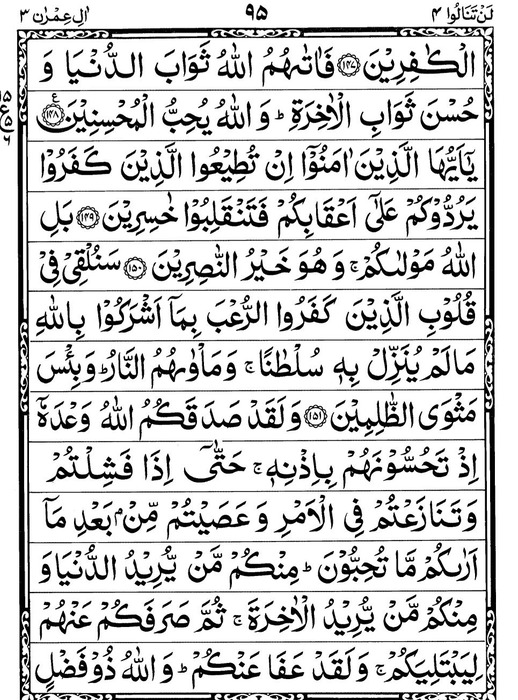 لَنْ تَنَالُوا ۴ ۹۵ اٰلِ عِمْرٰن ۳
الْكٰفِرِيْنَ ﴿۱۴۷﴾ فَاٰتٰىهُمُ اللّٰهُ ثَوَابَ الدُّنْيَا وَ
حُسْنَ ثَوَابِ الْاٰخِرَةِ ؕ وَاللّٰهُ يُحِبُّ الْمُحْسِنِيْنَ ﴿۱۴۸﴾ ع
يٰۤاَيُّهَا الَّذِيْنَ اٰمَنُوْۤا اِنْ تُطِيْعُوا الَّذِيْنَ كَفَرُوْا
يَرُدُّوْكُمْ عَلٰۤى اَعْقَابِكُمْ فَتَنْقَلِبُوْا خٰسِرِيْنَ ﴿۱۴۹﴾ بَلِ
اللّٰهُ مَوْلٰىكُمْ ۚ وَ هُوَ خَيْرُ النّٰصِرِيْنَ ﴿۱۵۰﴾ سَنُلْقِيْ فِيْ
قُلُوْبِ الَّذِيْنَ كَفَرُوا الرُّعْبَ بِمَاۤ اَشْرَكُوْا بِاللّٰهِ
مَا لَمْ يُنَزِّلْ بِهٖ سُلْطٰنًا ۚ وَ مَاْوٰىهُمُ النَّارُ ؕ وَ بِئْسَ
مَثْوَى الظّٰلِمِيْنَ ﴿۱۵۱﴾ وَ لَقَدْ صَدَقَكُمُ اللّٰهُ وَعْدَهٗۤ
اِذْ تَحُسُّوْنَهُمْ بِاِذْنِهٖ ۚ حَتّٰۤى اِذَا فَشِلْتُمْ
وَ تَنَازَعْتُمْ فِي الْاَمْرِ وَ عَصَيْتُمْ مِّنْۢ بَعْدِ مَاۤ
اَرٰىكُمْ مَّا تُحِبُّوْنَ ؕ مِنْكُمْ مَّنْ يُّرِيْدُ الدُّنْيَا وَ
مِنْكُمْ مَّنْ يُّرِيْدُ الْاٰخِرَةَ ۚ ثُمَّ صَرَفَكُمْ عَنْهُمْ
لِيَبْتَلِيَكُمْ ۚ وَ لَقَدْ عَفَا عَنْكُمْ ؕ وَ اللّٰهُ ذُوْ فَضْلٍ